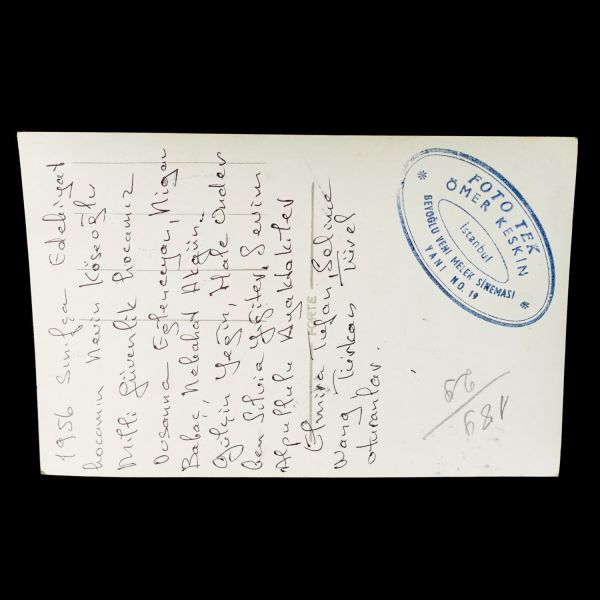 1956 Sınıfça Edebiyat
hocamın Nevin Köseoğlu
Milli Güvenlik hocamız
Ovsanna Eğlenceyan, Nigar
Babaç, Nebahat Akgün
Gülçin Yeğin, Hale Önder
ben Silvia Yiğiter, Sevim
Alpullulu Ayaktakiler
Elmira Selime
Wang Türkan Türel
oturanlar.
FORTE
FOTO TEK
ÖMER KESKİN
İstanbul
BEYOĞLU YENİ MELEK SİNEMASI
YANI NO. 19
189